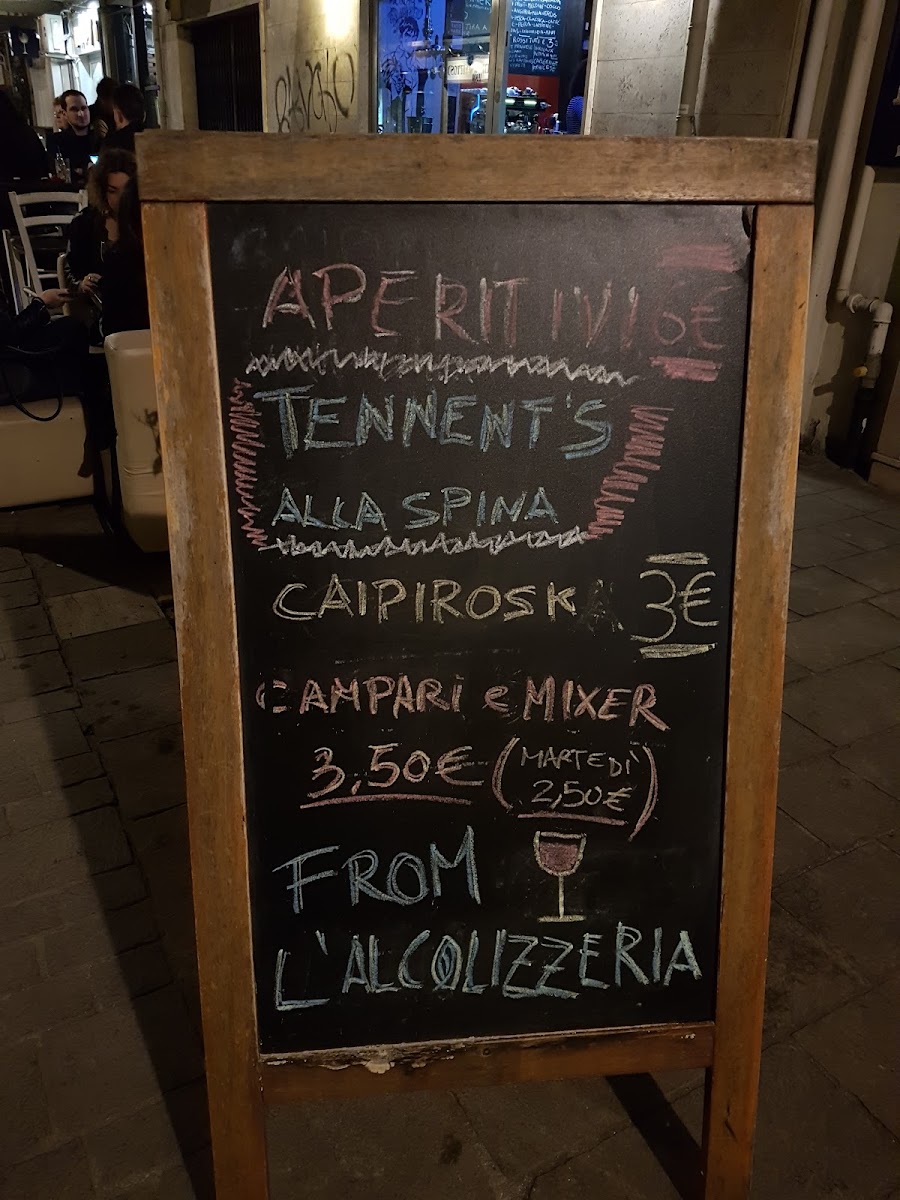 APERITIVI 6€
TENNENT'S
ALLA SPINA
CAIPIROSKA 3€
CAMPARI e MIXER
3,50€ (MARTEDÌ
2,50€)
FROM
L'ALCOLIZZERIA